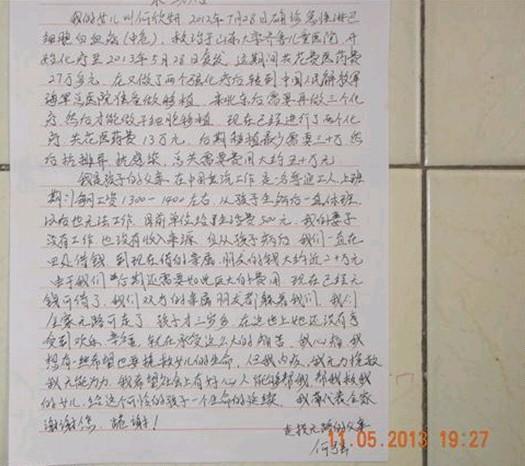 我的女儿叫何欣妍 2012年7月28日确诊急性淋巴
细胞白血病(中危), 救治于山东大学齐鲁儿童医院, 开
始化疗至2013年5月28日复发, 这期间共花费医药费
27万多元. 在又做了两个强化疗后转到中国人民解放军
海军总医院准备做移植. 来北京后需要再做三个化
疗, 然后才能做干细胞移植. 现在已经进行了两个化
疗, 共花医药费13万元, 后期移植最少需要三十万, 然
后抗排异 抗感染, 总共需要费用大约五十万元.
我是孩子的父亲, 在中国重汽工作 是一名普通工人, 上班
期间每月工资1300—1400左右, 从孩子生病后一直休班
以后也无法工作, 目前单位给生活费500元, 我的妻子
没有工作 也没有收入来源, 自从孩子病后 我们一直在
四处借钱, 到现在借的亲属, 朋友的钱大约近二十万元
由于我们后期还需要如此巨大的费用 现在已经无
钱可借了, 我们双方的亲属 朋友都躲着我们, 我们
全家无路可走了, 孩子才三岁多, 在这世上她还没有享
受到欢乐 幸福, 就在承受这么大的痛苦, 我心痛, 我
想有一些希望也要挽救女儿的生命, 但我内疚, 我无力挽救
我无能为力, 我希望社会上有好心人能够帮我, 帮我救救我
的女儿, 给这个可怜的孩子一个生命的延续, 我南代表全家
谢谢您, 跪谢!
走投无路的父亲
何
11.05.2013 19:27